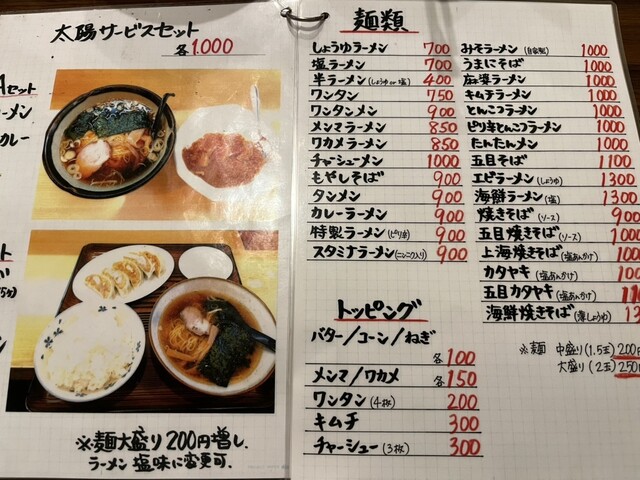 太陽サービスセット
各1.000
Aセット
ーメン
カレー
※麺大盛り200円増し.
ラーメン 塩味に変更可.
麺類
しょうゆラーメン 700
塩ラーメン 700
半ラーメン(しょうゆor塩) 400
ワンタン 750
ワンタンメン 900
メンマラーメン 850
ワカメラーメン 850
チャーシューメン 1000
もやしそば 900
タンメン 900
カレーラーメン 900
特製ラーメン(ピリ辛) 900
スタミナラーメン(ニンニク入り) 900
みそラーメン(自家製) 1000
うまにそば 1000
麻婆ラーメン 1000
キムチラーメン 1000
とんこつラーメン 1000
ピリ辛とんこつラーメン 1000
たんたんメン 1000
五目そば 1100
エビラーメン(しょうゆ) 1300
海鮮ラーメン(塩) 1300
焼きそば(ソース) 900
五目焼きそば(ソース) 1000
上海焼きそば(塩あんかけ) 100
カタヤキ(塩あんかけ) 100
五目カタヤキ(塩あんかけ) 11
海鮮焼きそば(薄しょうゆ) 13
※麺 中盛り(1.5玉)200円
大盛り(2玉)250
トッピング
バター/コーン/ねぎ
各100
メンマ/ワカメ 各150
ワンタン(4枚) 200
キムチ 300
チャーシュー(3枚) 300